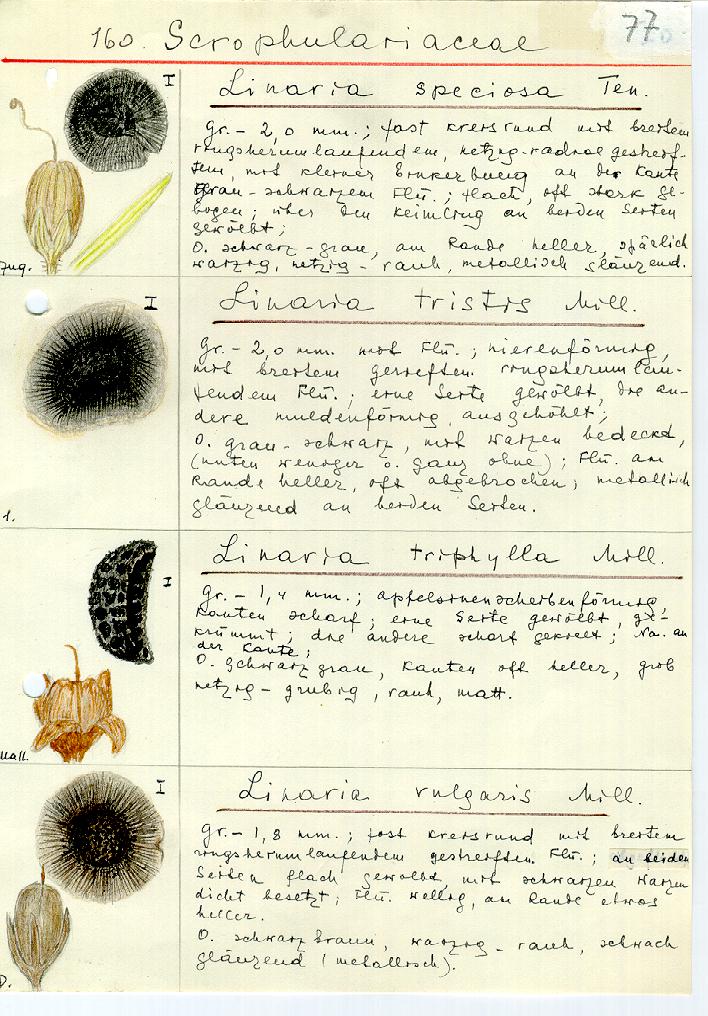 77
160. Scrophulariaceae
I
Linaria speciosa Ten.
Gr. - 2,0 mm.; fast kreisrund mit breitem
ringsherumlaufendem, netzig-radial gestreif-
tem, mit kleiner Einkerbung an der Kante
grau-schwarzem Flü.; flach, oft stark ge-
bogen; über den Keimling an beiden Seiten
gewölbt;
O. schwarz-grau, am Rande heller, spärlich
warzig, netzig-rauh, metallisch glänzend.
Jug.
I
Linaria tristis Mill.
Gr. - 2,0 mm. mit Flü.; nierenförmig,
mit breitem gereiften ringsherumlau-
fendem Flü.; eine Seite gewölbt, die an-
dere muldenförmig ausgehöhlt;
O. grau-schwarz, mit Warzen bedeckt,
(unten weniger o. ganz ohne); Flü. am
Rande heller, oft abgebrochen; metallisch
glänzend an beiden Seiten.
1.
I
Linaria triphylla Mill.
Gr. - 1,4 mm.; apfelsinenscheibenförmig,
Kanten scharf; eine Seite gewölbt, ge-
krümmt; die andere scharf gekielt; Na. an
der Kante;
O. schwarzgrau, Kanten oft heller, grob
netzig-grubig, rauh, matt.
Hall.
I
Linaria vulgaris Mill.
Gr. - 1,8 mm.; fast kreisrund mit breitem
ringsherumlaufendem gestreiften Flü.; an beiden
Seiten flach gewölbt, mit schwarzen Warzen
dicht besetzt; Flü. wellig, am Rande etwas
heller.
O. schwarzbraun, warzig-rauh, schwach
glänzend (metallisch).
D.